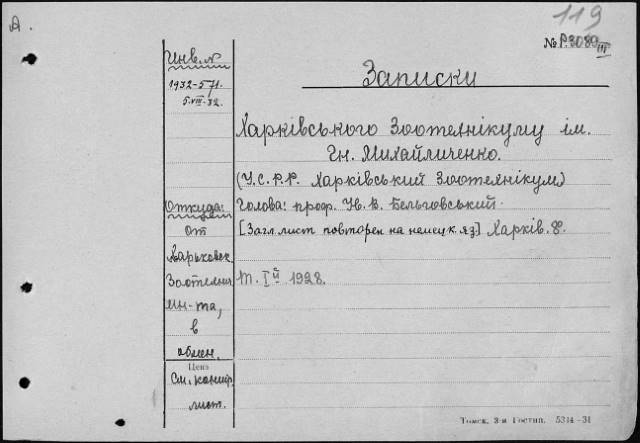 A.
119
№ Р.3089 III
Инв. №
1932-571.
5.VIII.32.
Записки
Харківського Зоотехнікуму ім.
Гн. Михайличенко.
(У.С.Р.Р. Харківський Зоотехнікум)
Откуда:
Голова: проф. Ив. В. Бельговський.
от
[Загл. лист повторен на немецк. яз.] Харків. 8°.
Харьковск.
Зоотехни
т. I й 1928.
ин-та,
в
обмен.
Цена
См. контр.
лист.
Томск, 3-я Гостип. 5314-31